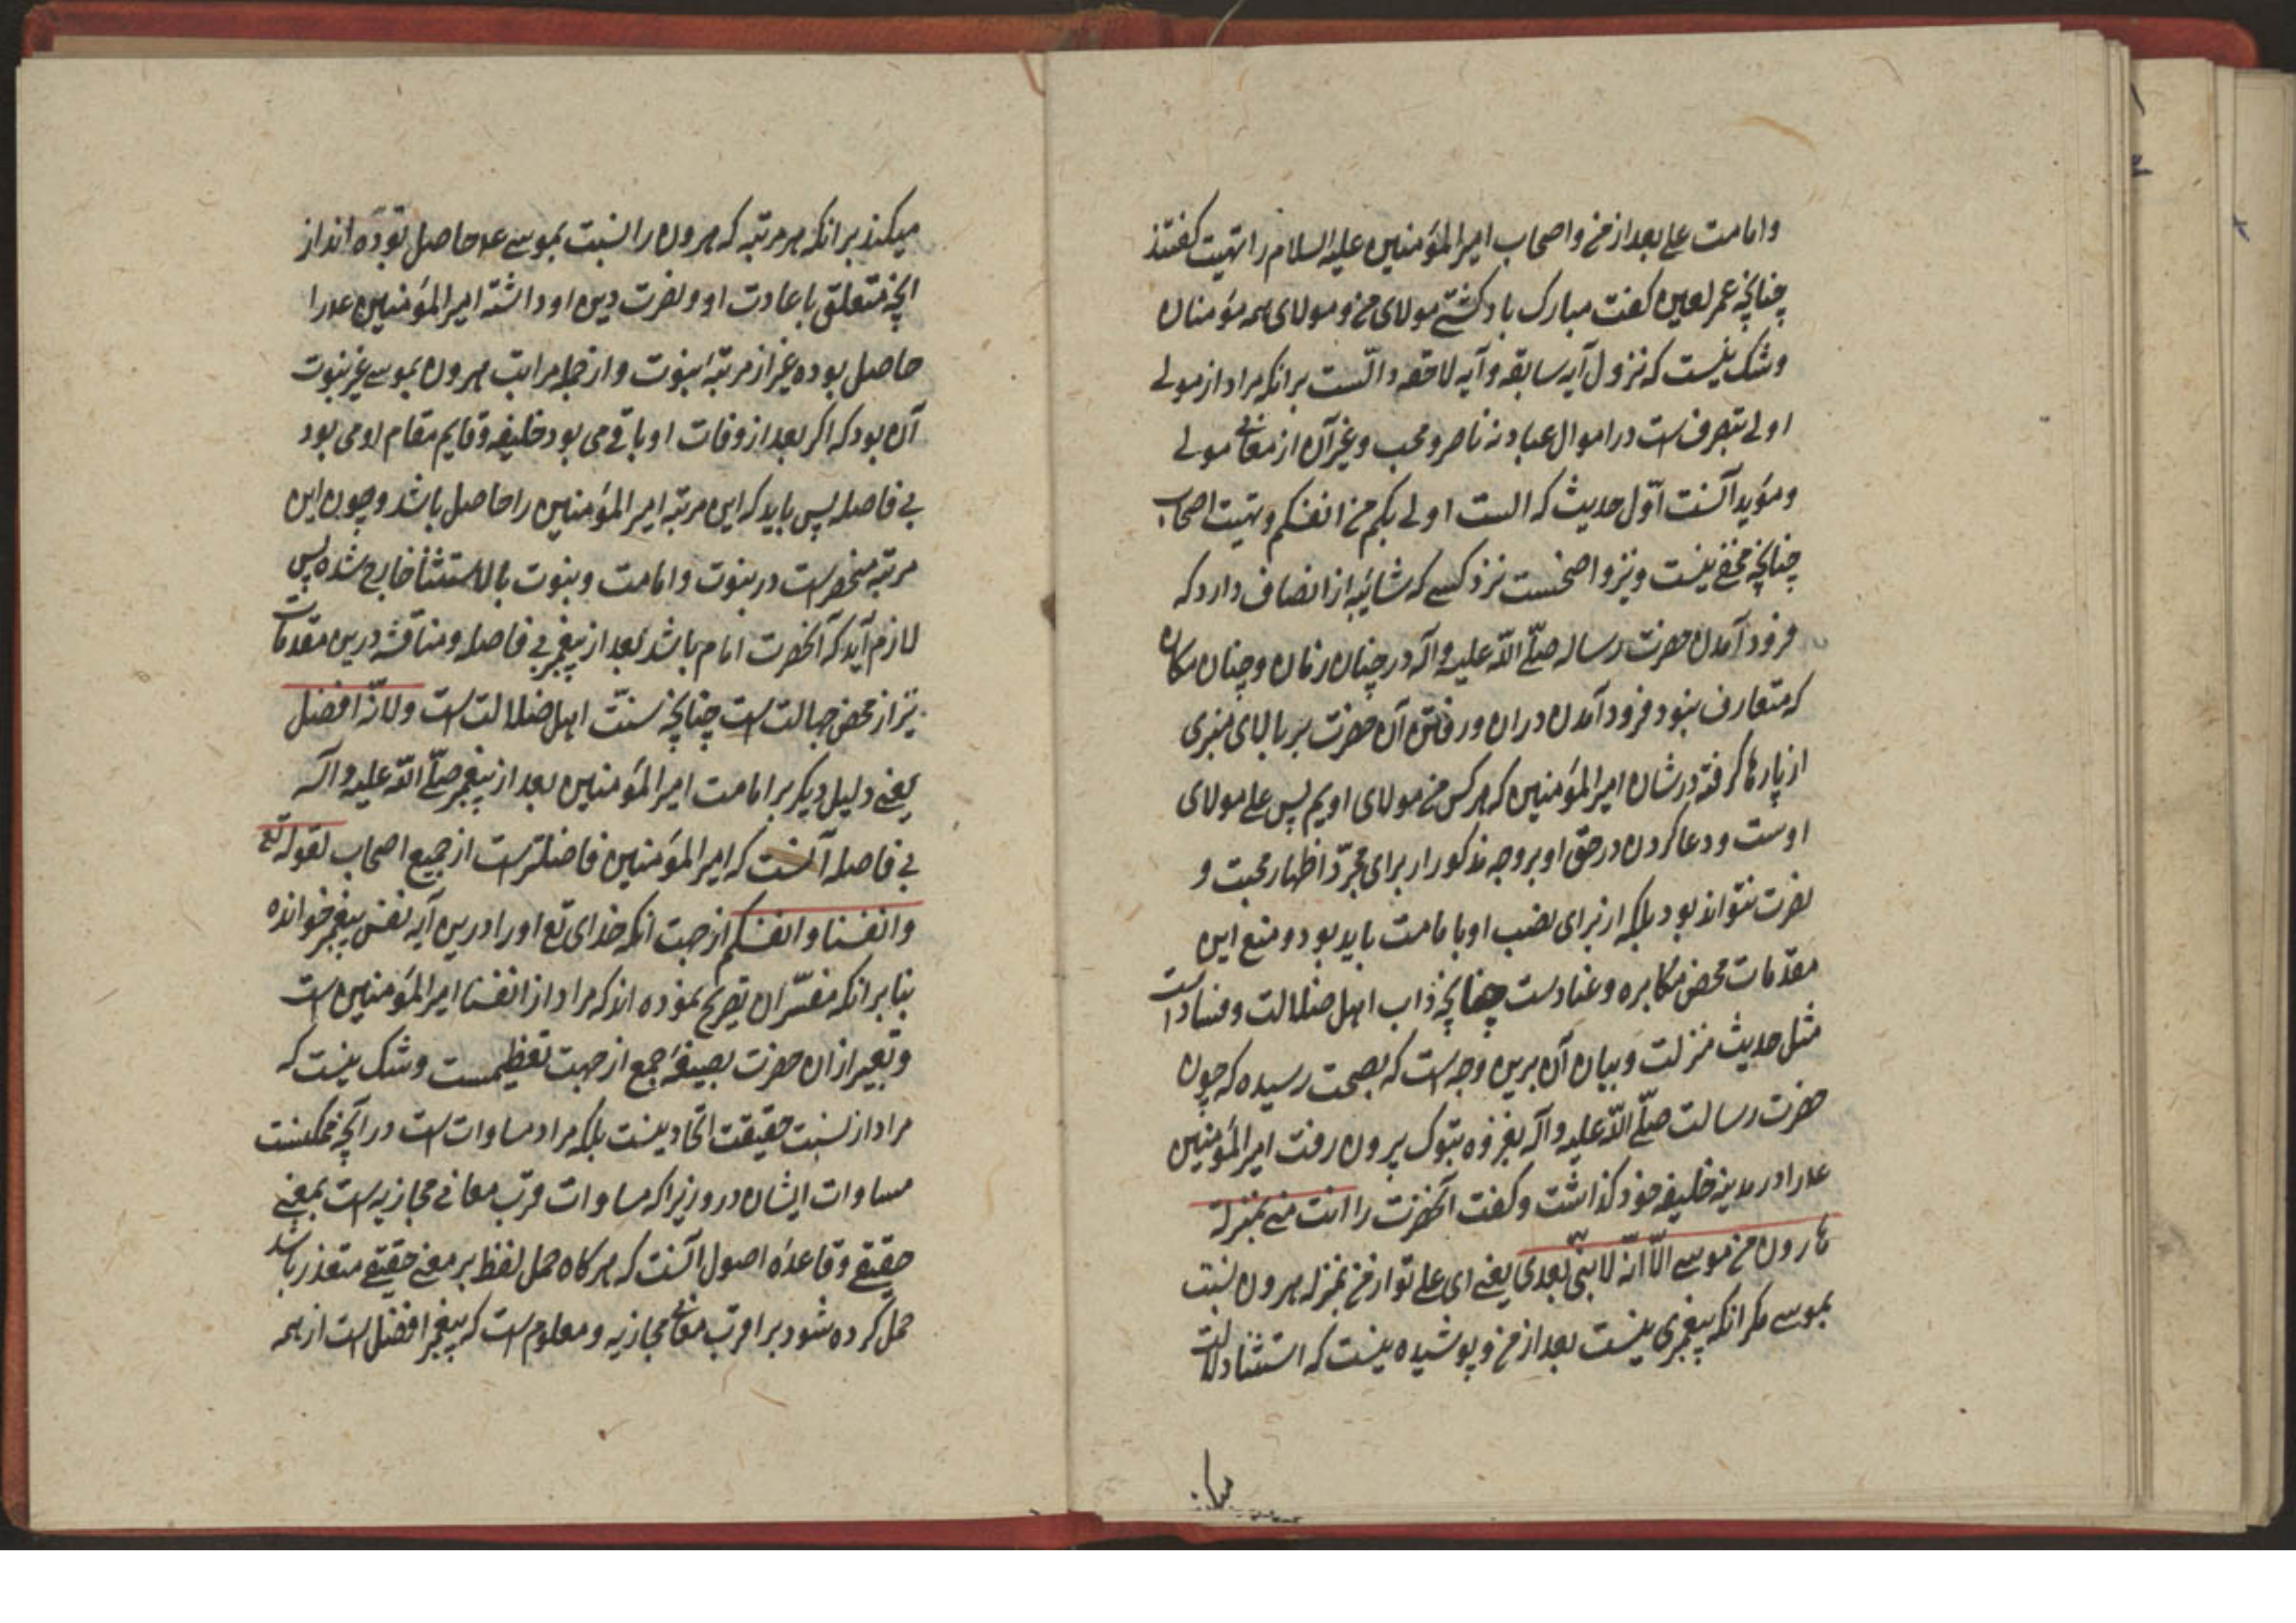 وامامت علی بعد از من و اصحاب امیرالمؤمنین علیه السلام را تهنیت گفتند
چنانچه عمر لعین کفت مبارک باد کشتی مولای من و مولای همه مؤمنان
و شک نیست که نزول آیه سابقه و آیه لاحقه دالست برانکه مراد از مولی
اولی بتصرفست در اموال عباد نه ناصر و محب و غیر آن از معانی مولی
و مؤید آنست اوّل حدیث که الست اولی بکم من انفسکم و تهنیت اصحاب
چنانچه مخفی نیست و نیز واضحست نزد کسی که شائبه از انصاف دارد که
فرود آمدن حضرت رساله صلّی اللّه علیه وآله در چنان زمان و چنان مکان
که متعارف نبود فرود آمدن دران و رفتن آن حضرت بر بالای منبری
از پارها کرفته در شان امیرالمؤمنین که هر کس من مولای اویم پس علی مولای
اوست و دعا کردن در حق او بر وجه مذکور از برای مجرّد اظهار محبت و
نصرت نتواند بود بلکه از برای نصب او بامامت باید بود و منع این
مقدمات محض مکابره و عنادست چنانچه داب اهل ضلالت و فسادست
مثل حدیث منزلت و بیان آن برین وجه است که بصحت رسیده که چون
حضرت رسالت صلّی اللّه علیه وآله بغزوه تبوک بیرون رفت امیرالمؤمنین
عه را در مدینه خلیفه خود کذاشت و کفت آنحضرت را انت منی بمنزلة
هارون من موسی الّا انّه لا نبیّ بعدی یعنی ای علی تو از من بمنزله هرون نسبت
بموسی مکر انکه پیغمبری نیست بعد از من و پوشیده نیست که استثنا دلالت
میکند برانکه هر مرتبه که هرون را نسبت بموسی عه حاصل بوده انداز
انچه متعلق باعادت او و نصرت دین او داشته امیرالمؤمنین عه را
حاصل بوده غیر از مرتبۀ نبوت و از جمله مراتب هرون بموسی غیر نبوت
آن بود که اکر بعد از وفات او باقی می بود خلیفه و قایم مقام او می بود
بی فاصله پس باید که این مرتبه امیرالمؤمنین را حاصل باشد و چون این
مرتبه منحصر است در نبوت و امامت و نبوت بالاستثنا خارج شده پس
لازم آید که آنحضرت امام باشد بعد از پیغمبر بی فاصله و مناقشه درین مقدمات
نیز از محض جهالت است چنانچه سنّت اهل ضلالت است ولانّه افضل
یعنی دلیل دیکر بر امامت امیرالمؤمنین بعد از پیغمبر صلّی اللّه علیه وآله
بی فاصله آنست که امیرالمؤمنین فاضلترست از جمیع اصحاب لقوله تع
وانفسنا وانفسکم از جهت انکه خدای تع او را درین آیه نفس پیغمبر خوانده
بنا بر انکه مفسّران تصریح نموده اند که مراد از انفسنا امیرالمؤمنین است
و تعبیر ازان حضرت بصیغۀ جمع از جهت تعظیمست و شک نیست که
مراد از نسبت حقیقت اتحاد نیست بلکه مراد مساوات است در آنچه ممکنست
مساوات ایشان درو زیرا که مساوات قرب معانی مجازیه است بمعنی
حقیقی و قاعدۀ اصول آنست که هر کاه حمل لفظ بر معنی حقیقی متعذر باشد
حمل کرده شود بر اقرب معانی مجازیه و معلوم است که پیغمبر افضل است از همه